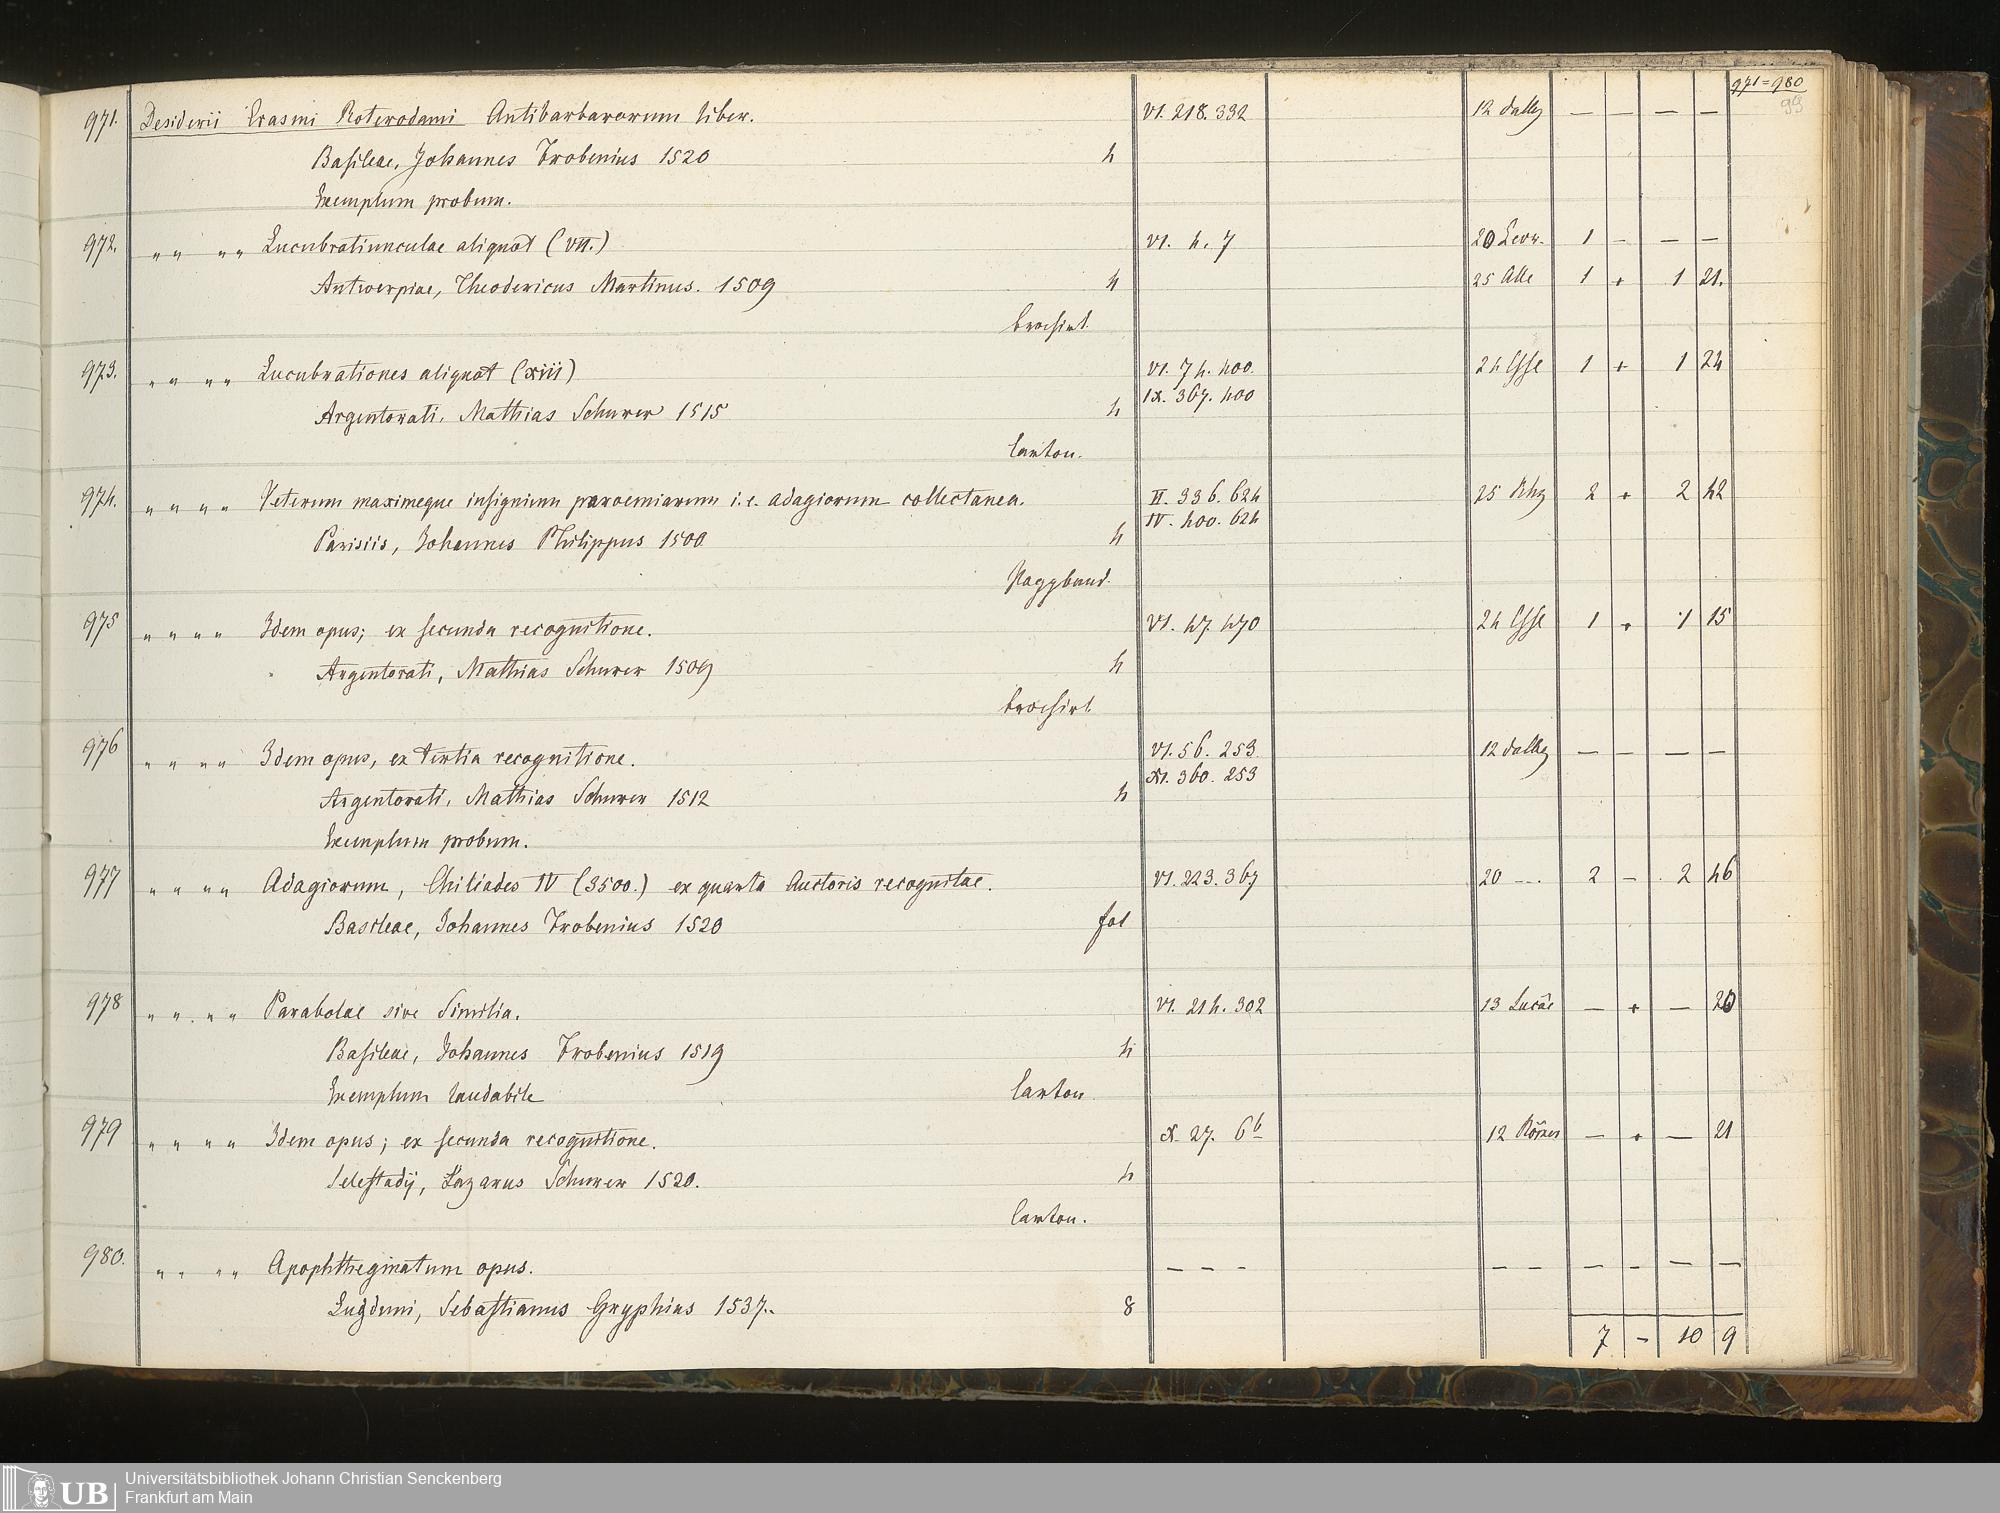 971=980
99
971. Desiderii Erasmi Roterodami Antibarbarorum liber. VI. 218. 332 12 Dalbg — — — —
Basileae, Johannes Frobenius 1520 4
Exemplum probum.
972. " " " " Lucubratiunculae aliquot (VII.) VI. 4. 7 20 1 - — —
Antwerpiae, Theodericus Martinus. 1509 4 25 Alle 1 + 1 21.
brochirt.
973. " " " " Lucubrationes aliquot (xiii) VI. 74. 400. 24 Esse 1 + 1 24
IX. 367. 400
Argentorati, Mathias Schurer 1515 4
Carton.
974. " " " " Veterum maximeque insignium paroemiarum i.e. adagiorum collectanea. II. 336. 624 25 2 + 2 42
IV. 400. 624
Parisiis, Johannes Philippus 1500 4
Pappband.
975 " " " " Idem opus; ex secunda recognitione. VI. 47. 470 24 Esse 1 + 1 15
Argentorati, Mathias Schurer 1509 4
brochirt.
976 " " " " Idem opus, ex tertia recognitione. VI. 56. 253 12 Dalbg — — — —
XI. 360. 253
Argentorati, Mathias Schurer 1512 4
Exemplum probum.
977 " " " " Adagiorum, Chiliades IV (3500.) ex quarta Auctoris recognitae. VI. 223. 367 20 --- 2 — 2 46
Basileae, Johannes Frobenius 1520 fol
978 " " " " Parabolae sive Similia. VI. 214. 302 13 Lucäe — + — 20
Basileae, Johannes Frobenius 1519 4
Exemplum laudabile Carton.
979 " " " " Idem opus; ex secunda recognitione. X. 27. 6b 12 Körner — + — 21
Selestadij, Lazarus Schurer 1520. 4
Carton.
980. " " " " Apophthegmatum opus. — — - — — — - — —
Lugduni, Sebastianus Gryphius 1537. 8
7 - 10 9
UB
Universitätsbibliothek Johann Christian Senckenberg
Frankfurt am Main